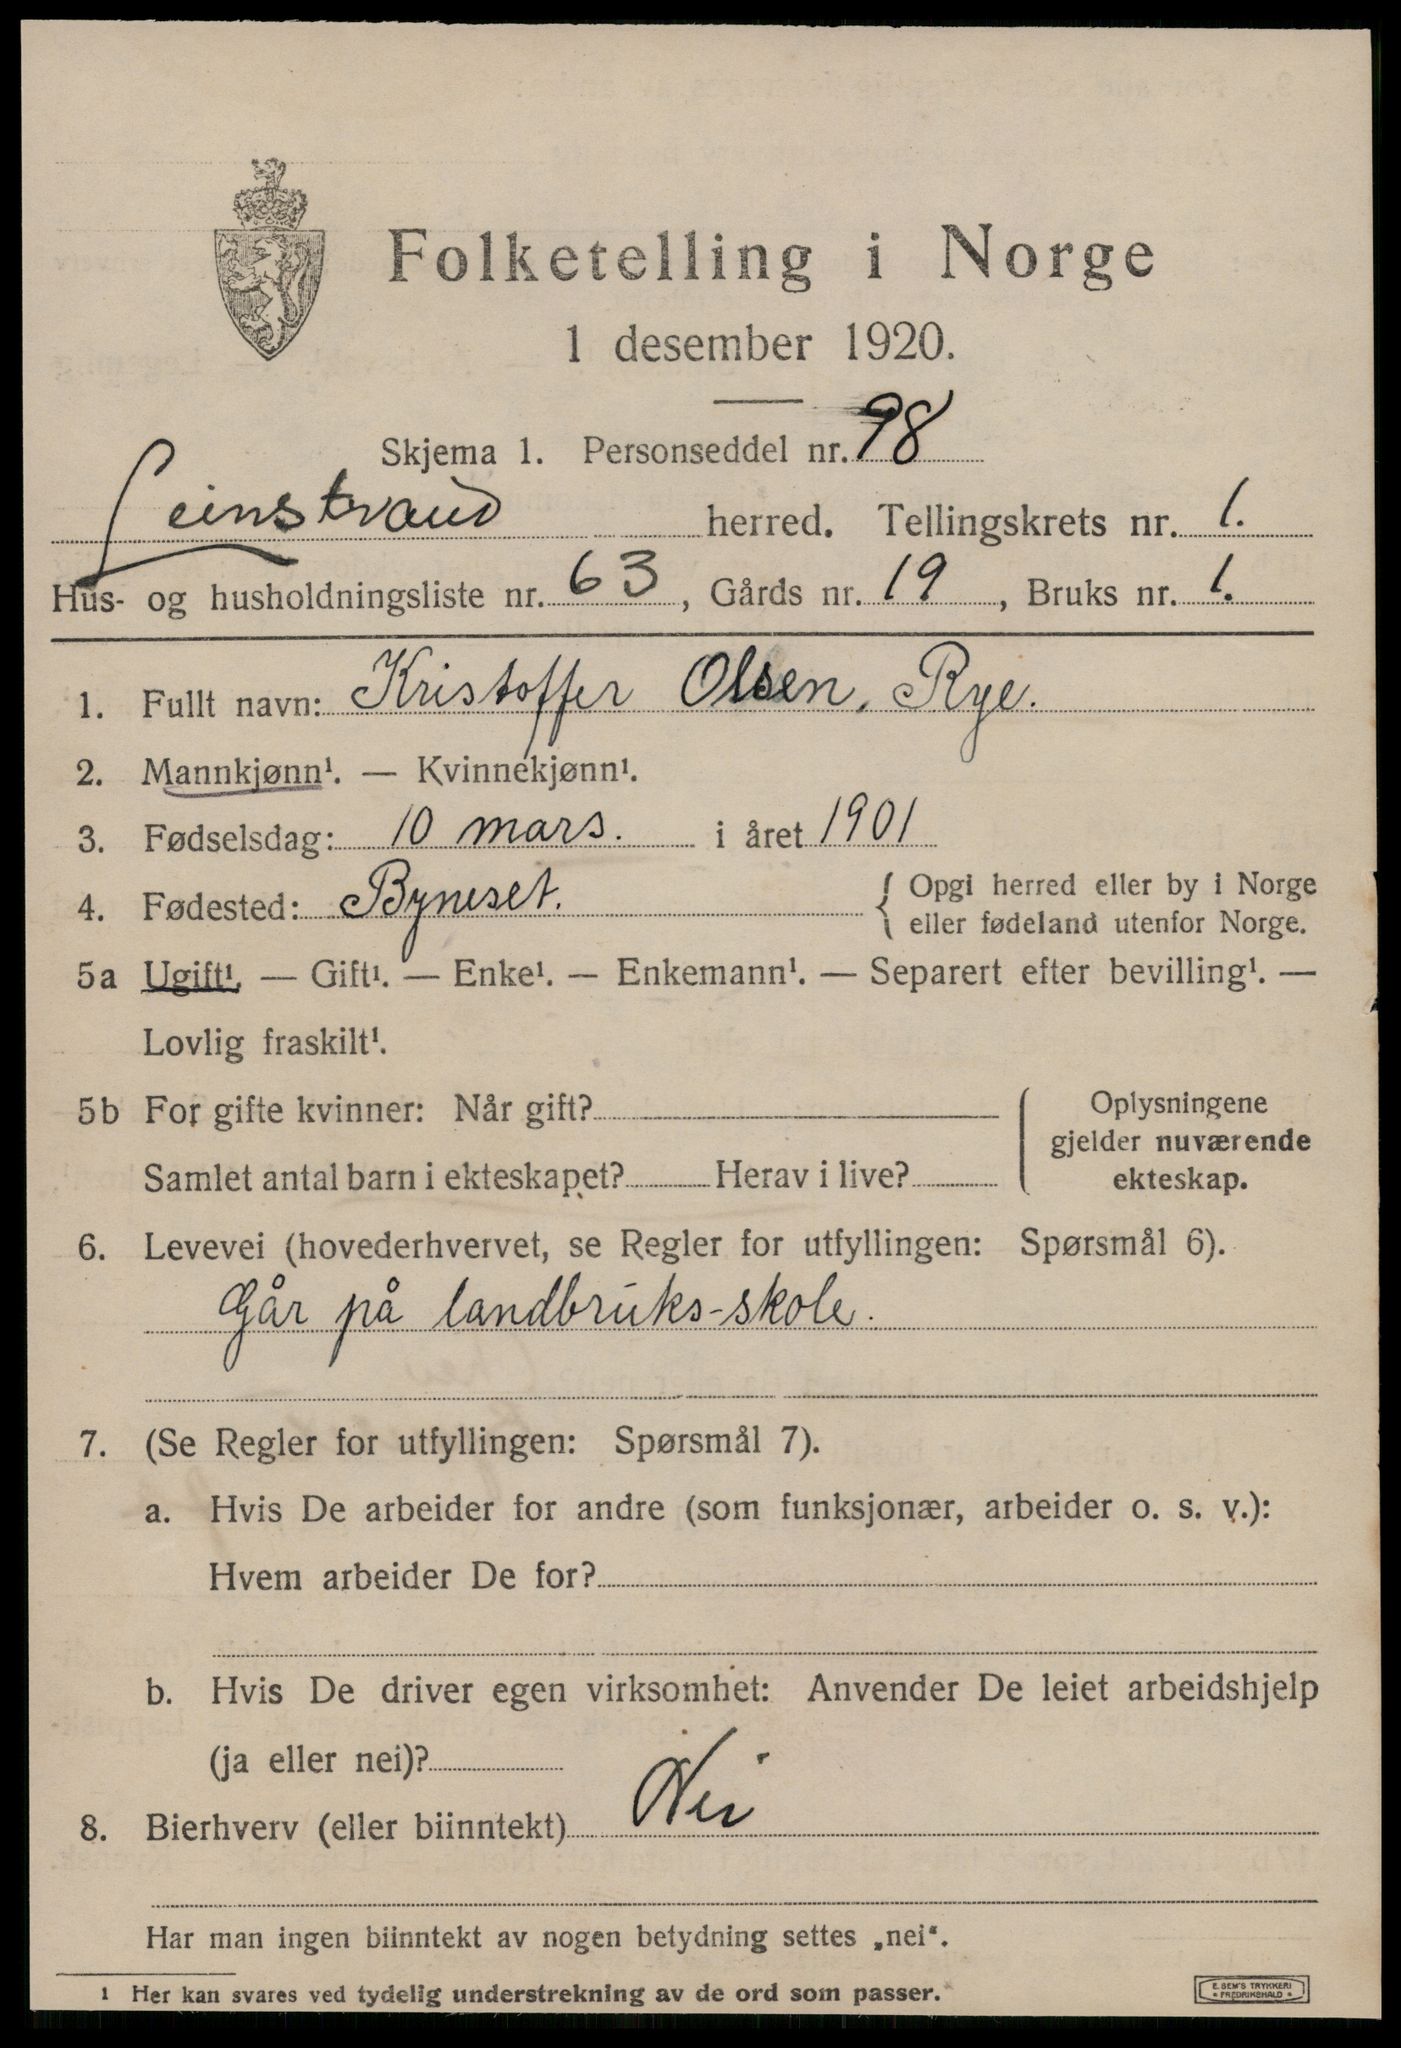 Folketelling i Norge
1 desember 1920.
Skjema 1. Personseddel nr. 98
Leinstrand herred. Tellingskrets nr. 1.
Hus- og husholdningsliste nr. 63, Gårds nr. 19, Bruks nr. 1.
1. Fullt navn: Kristoffer Olsen, Rye.
2. Mannkjønn¹. — Kvinnekjønn¹.
3. Fødselsdag: 10 mars. i året 1901
4. Fødested: Byneset. { Opgi herred eller by i Norge
eller fødeland utenfor Norge.
5a Ugift¹. — Gift¹. — Enke¹. — Enkemann¹. — Separert efter bevilling¹. —
Lovlig fraskilt¹.
5b For gifte kvinner: Når gift?
Samlet antal barn i ekteskapet? Herav i live?
Oplysningene
gjelder nuværende
ekteskap.
6. Levevei (hovederhvervet, se Regler for utfyllingen: Spørsmål 6).
Går på landbruks-skole.
7. (Se Regler for utfyllingen: Spørsmål 7).
a. Hvis De arbeider for andre (som funksjonær, arbeider o. s. v.):
Hvem arbeider De for?
b. Hvis De driver egen virksomhet: Anvender De leiet arbeidshjelp
(ja eller nei)?
8. Bierhverv (eller biinntekt) Nei
Har man ingen biinntekt av nogen betydning settes „nei“.
1 Her kan svares ved tydelig understrekning av de ord som passer.
E. SEM'S TRYKKERI
* FREDRIKSHALD *